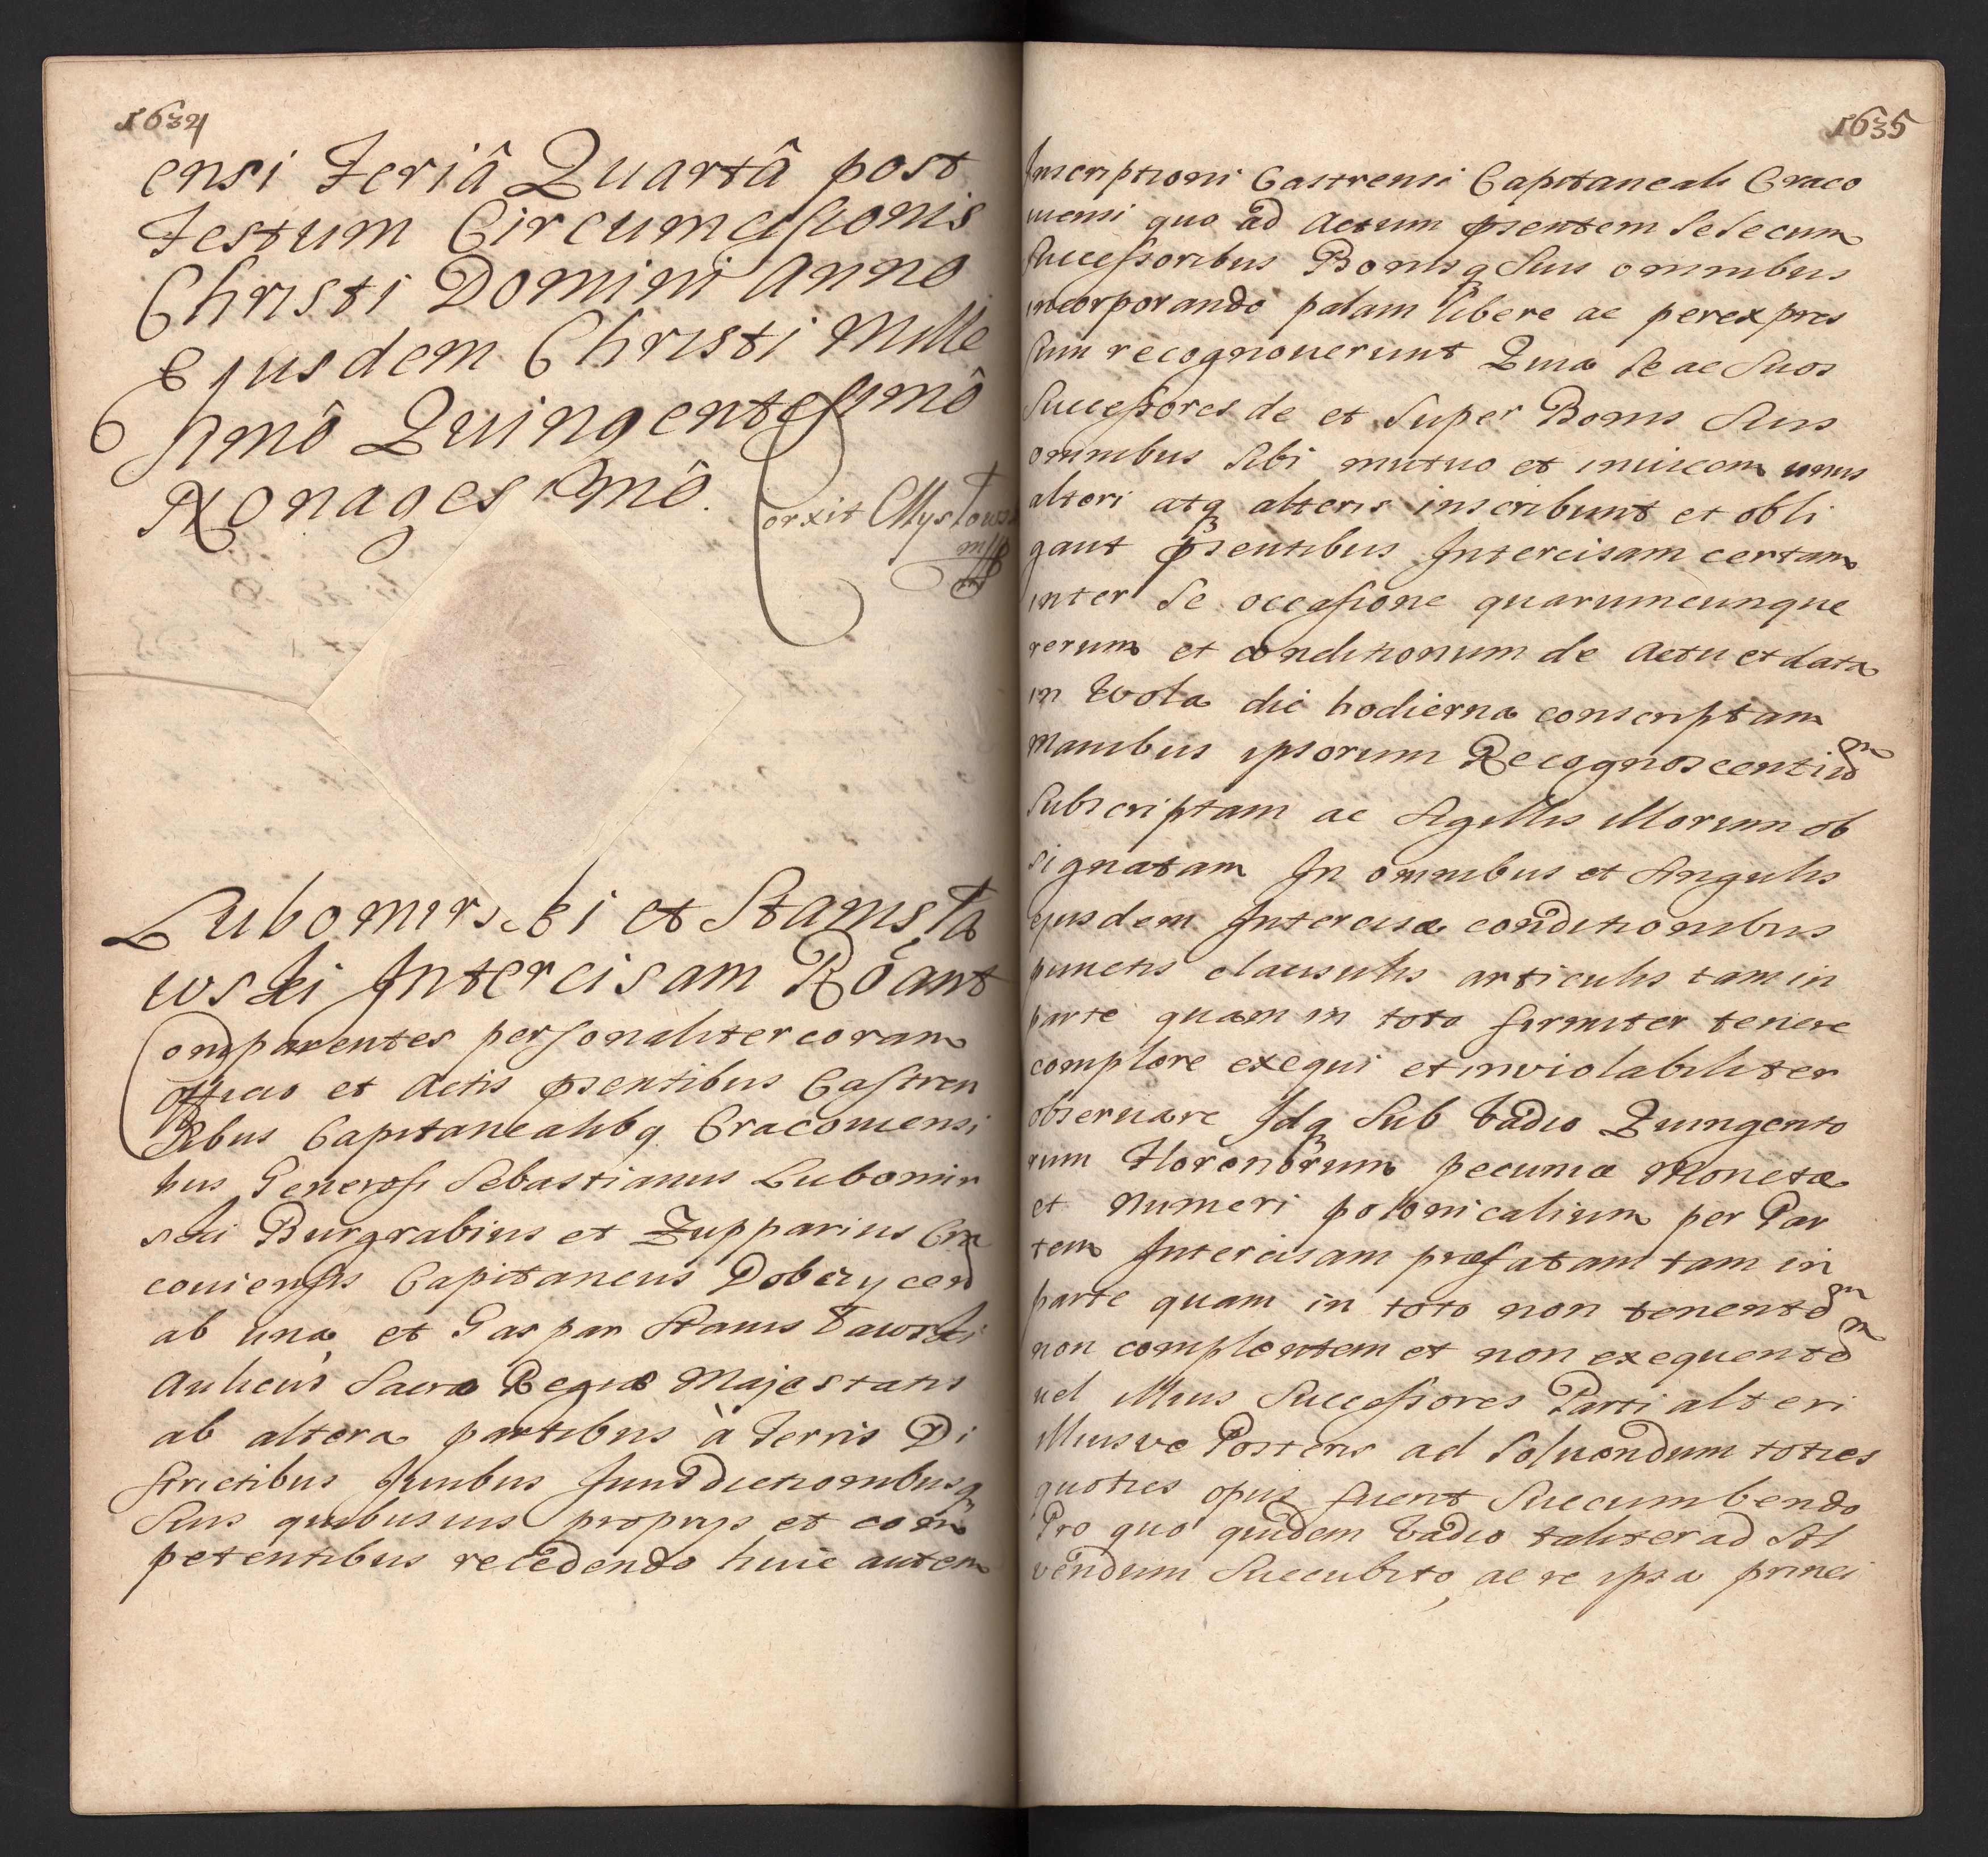 1634
ensi Feriâ Quartâ post
Festum Circumcisionis
Christi Domini Anno
Ejusdem Christi Mille
simô Quingentesimô
Nonagesimô.
Corxit Mysłows
mp
Lubomirski et Stanisła
wski Intercisam Roãnt
Comparentes personaliter coram
officio et Actis pñsentibus Castren
sibus Capitanealibq Cracoviensi
bus Generosi Sebastianus Lubomir
ski Burgrabius et Zupparius Cra
coviensis Capitaneus Dobczycen
ab una et Gaspar Stanisławski
Aulicus Sacræ Regiæ Majestatis
ab altera partibus à Terris Di
strictibus Juribus Jurisdictionibusq
suis quibusvis proprys et com
petentibus recedendo huic autem
1635
Inscriptioni Castrensi Capitaneali Craco
viensi quo ad Actum pñsentem se se cum
successoribus Bonisq suis omnibus
incorporando palam libere ac perexpres
sum recognoverunt Quia se ac suos
successores de et super Bonis suis
omnibus sibi mutuo et invicem unus
alteri atq alteris inscribunt et obli
gant pñsentibus Intercisam certam
inter se occasione quarumcunque
rerum et conditionum de Actu et data
in Wola die hodierna conscriptam
manibus ipsorum Recognoscentium
subscriptam ac sigillis illorum ob
signatam In omnibus et singulis
ejusdem Intercisæ conditionibus
punctis clausulis articulis tam in
parte quam in toto firmiter tenere
complere exequi et inviolabiliter
observare Idq sub Vadio Quingento
rum Florenorum pecuniæ Monetæ
et Numeri polonicalium per Par
tem Intercisam præfatam tam in
parte quam in toto non tenentem
non complentem et non exequentem
vel illius Successores Parti alteri
illiusve Posteris ad solvendum toties
quoties opus fuerit succumbendo
Pro quo quidem Vadio taliter ad sol
vendum succubito, ac re ipsa princi